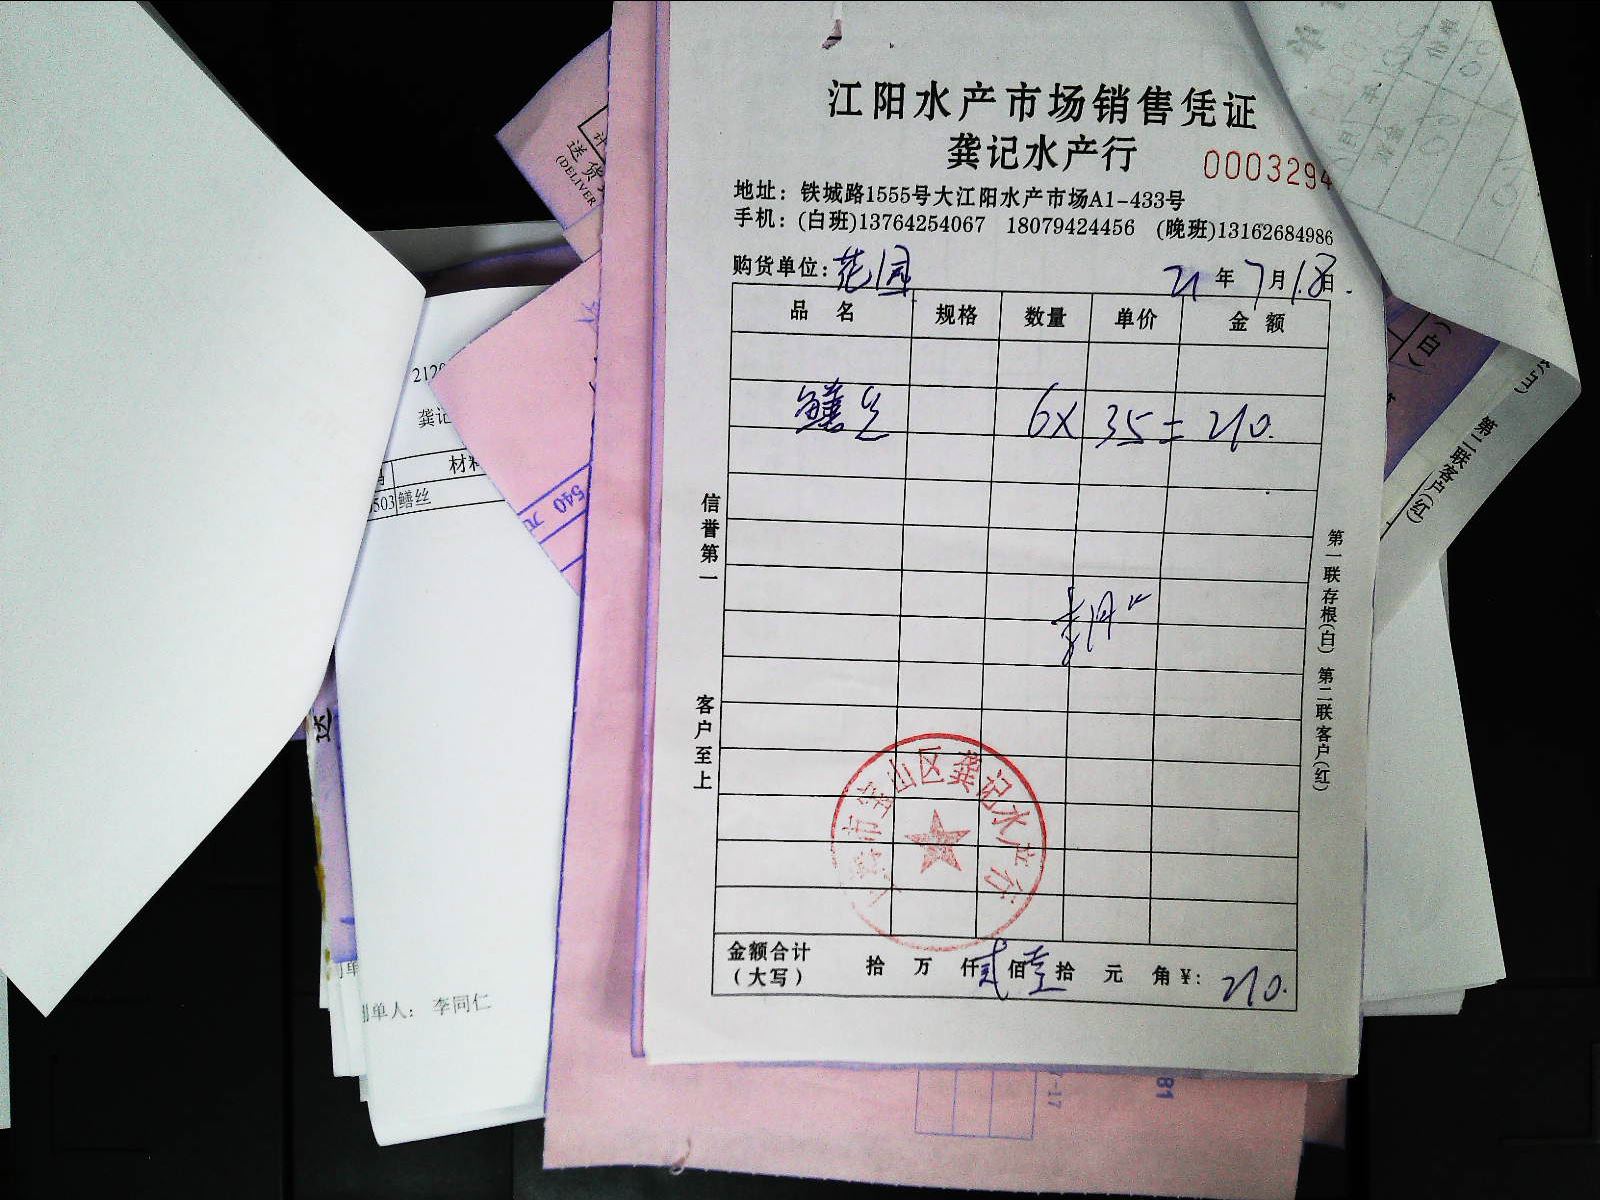 江阳水产市场销售凭证
龚记水产行
0003294
地址：铁城路1555号大江阳水产市场A1-433号
手机：(白班)13764254067 18079424456 (晚班)13162684986
购货单位：花园 21年7月18日.
品名 规格 数量 单价 金额
鳝丝 6× 35= 210.
信誉第一
客户至上
第一联存根(白) 第二联客户(红)
上海市宝山区龚记水产行
金额合计
(大写)
拾 万 仟 贰 佰 壹 拾 元 角 ¥: 210.
龚记
材料
503 鳝丝
540 元
单人： 李同仁
送货
(DELIVER
第二联客户(红)
(白)
送
81
-17